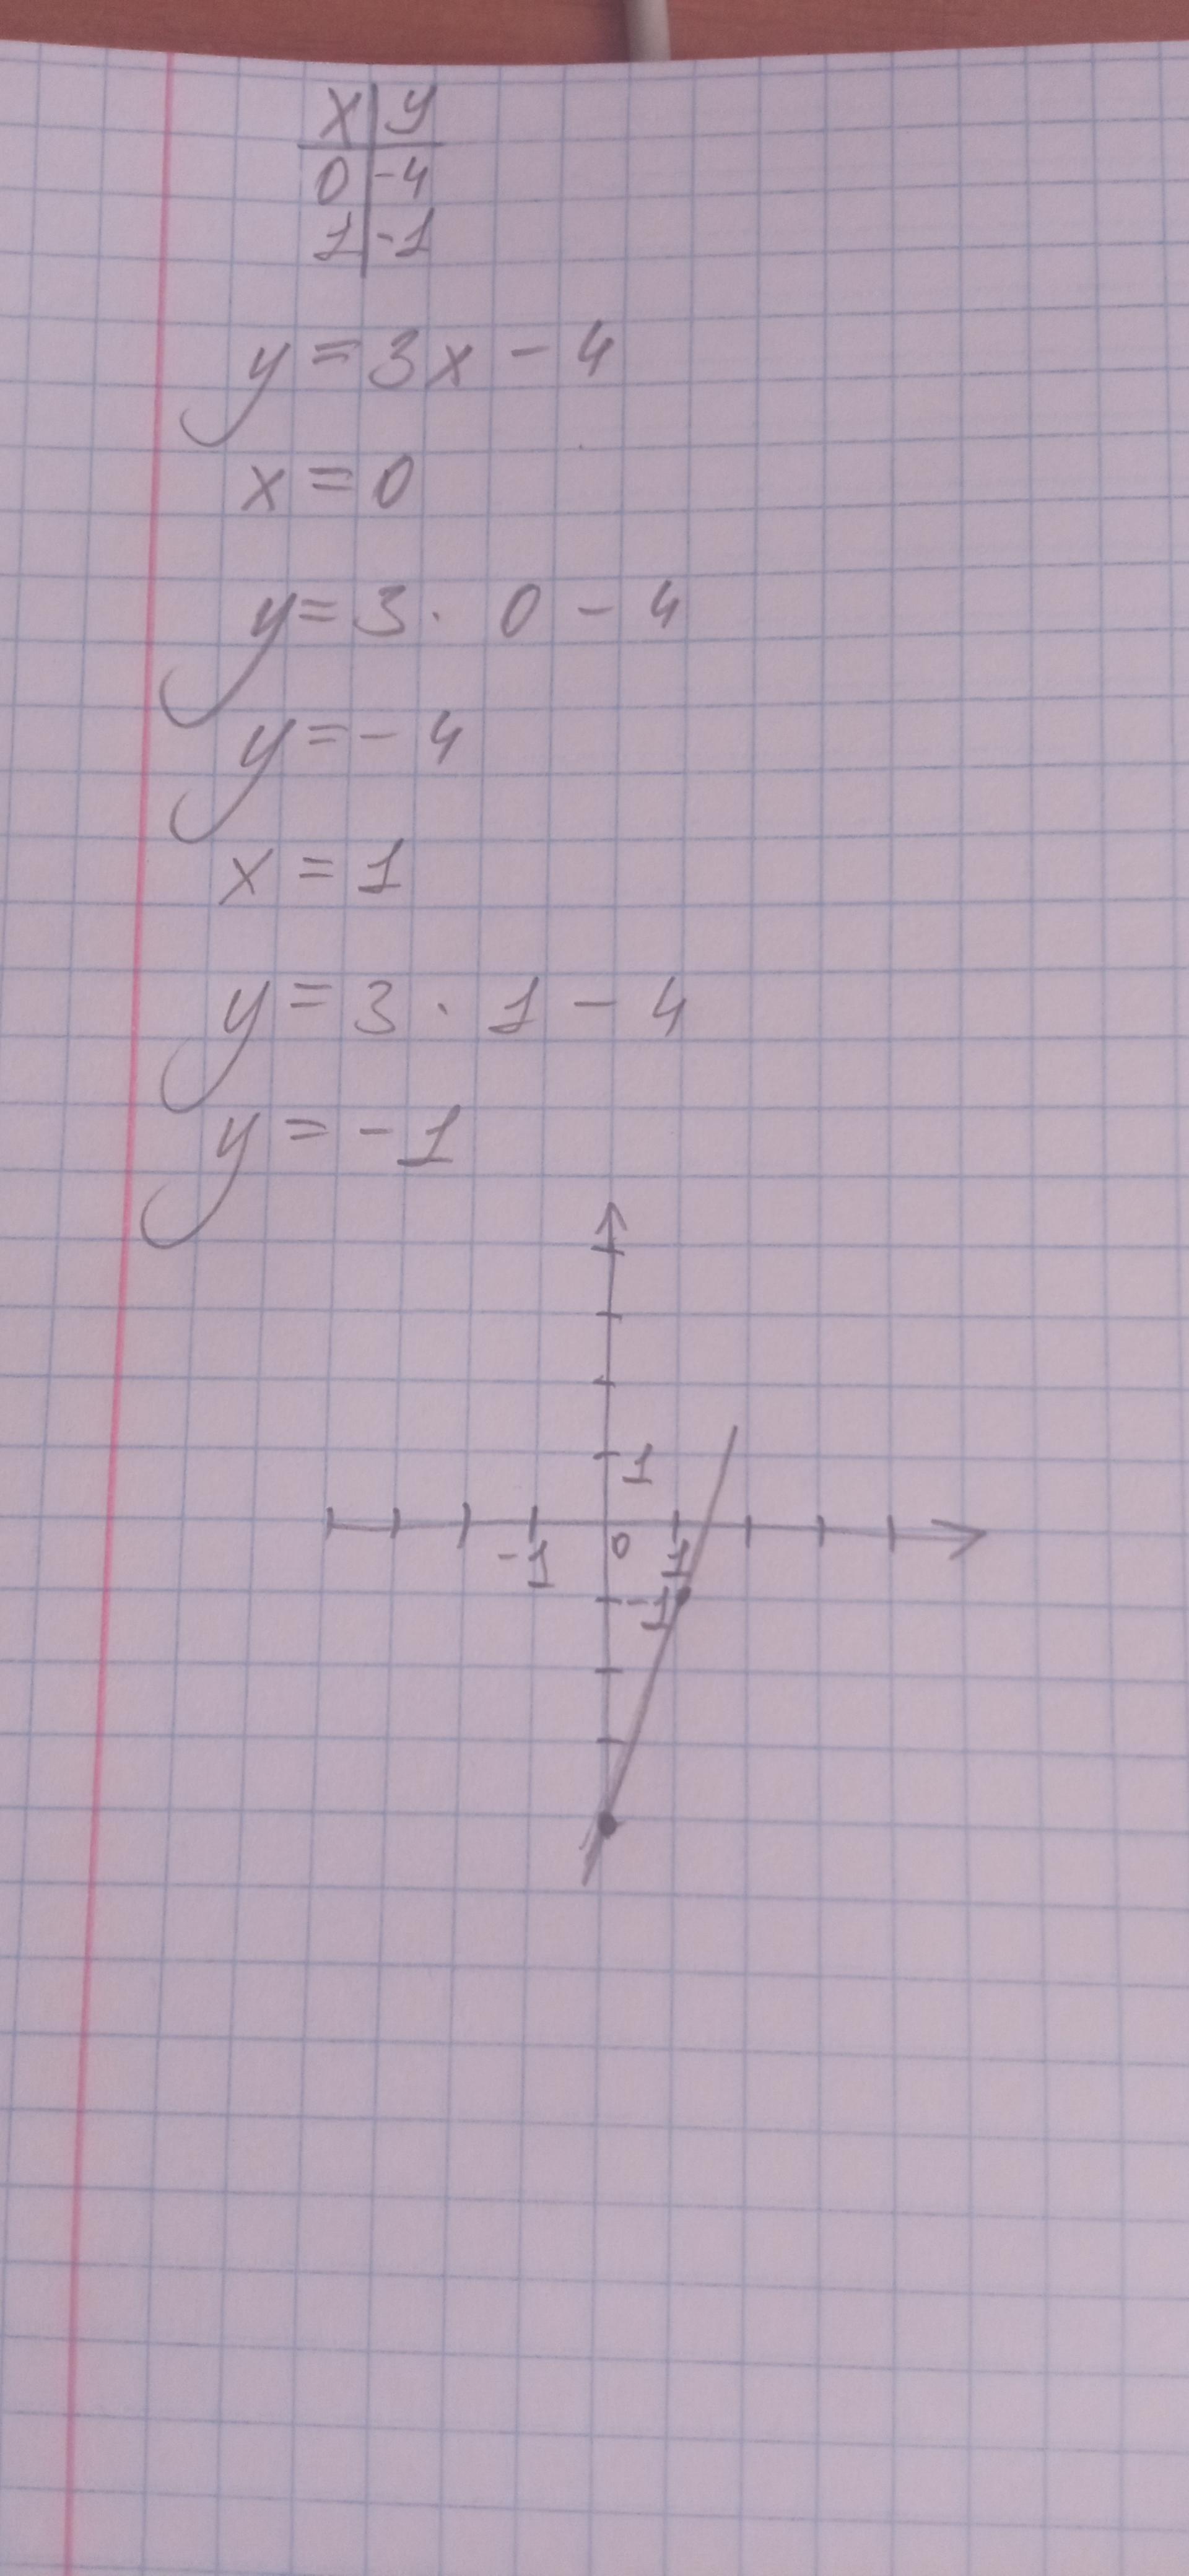 x y
0 -4
1 -1
y = 3x - 4
x = 0
y = 3 · 0 - 4
y = - 4
x = 1
y = 3 · 1 - 4
y = - 1
1
-1 0 1
-1